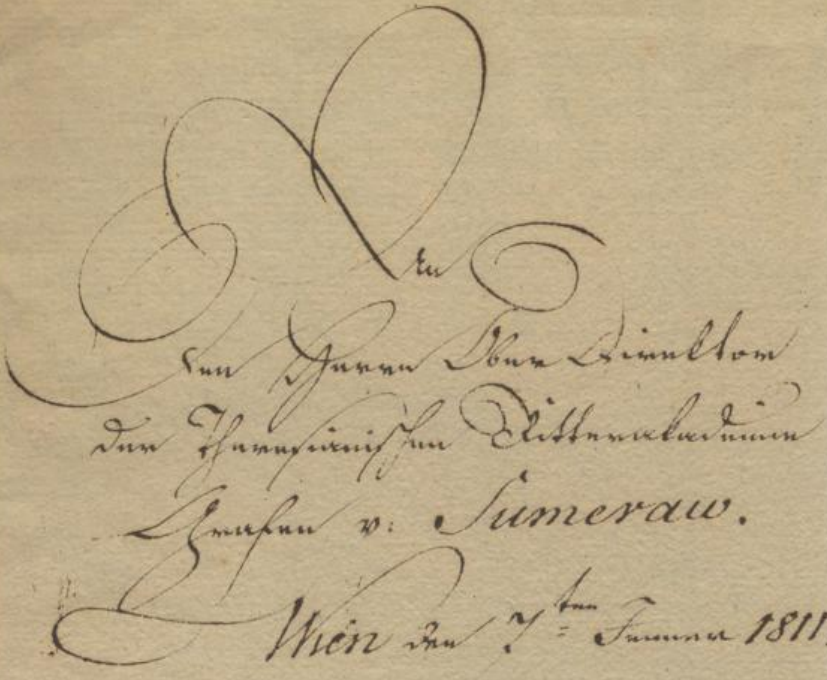 An
den Herrn Ober Direktor
der Theresianischen Ritterakademie
Grafen v: Sumeraw.
Wien den 7ten Jenner 1811.